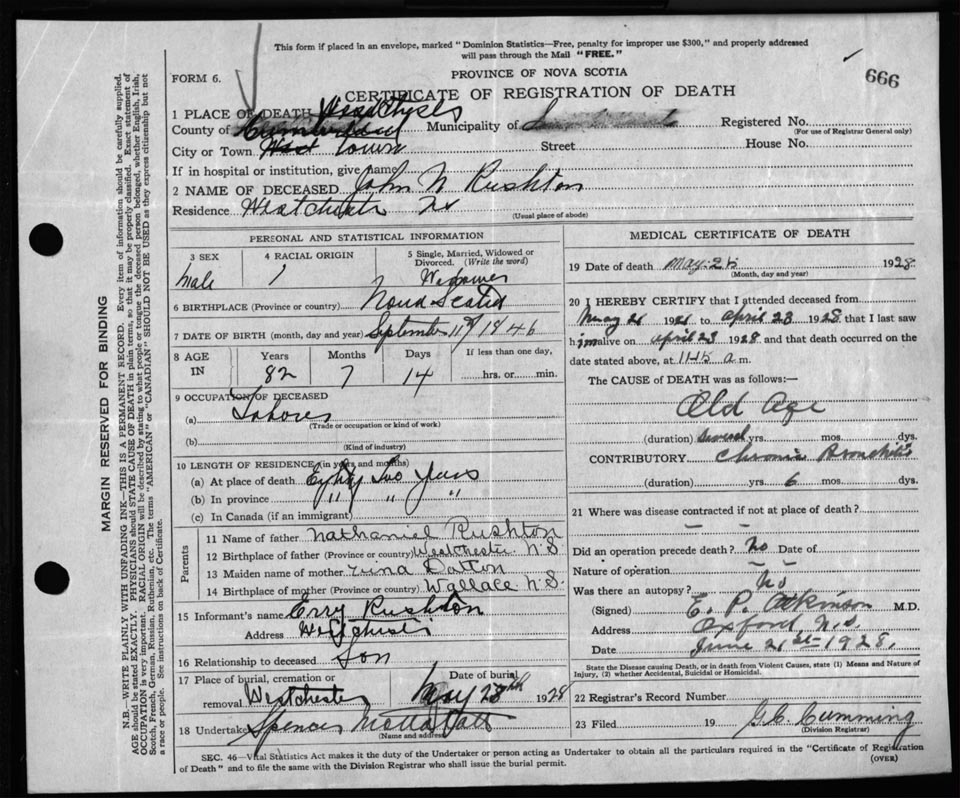 This form if placed in an envelope, marked "Dominion Statistics—Free, penalty for improper use $300," and properly addressed
will pass through the Mail "FREE."
FORM 6.
PROVINCE OF NOVA SCOTIA
666
CERTIFICATE OF REGISTRATION OF DEATH
1 PLACE OF DEATH
County of Cumberland Municipality of Registered No.
(For use of Registrar General only)
City or Town Street House No.
If in hospital or institution, give name
2 NAME OF DECEASED John N Rushton
Residence Westchester NS
(Usual place of abode)
PERSONAL AND STATISTICAL INFORMATION
3 SEX 4 RACIAL ORIGIN 5 Single, Married, Widowed or Divorced. (Write the word)
Male Widower
6 BIRTHPLACE (Province or country) Nova Scotia
7 DATE OF BIRTH (month, day and year) September 11th 1846
8 AGE IN Years Months Days If less than one day,
82 7 14 hrs. or min.
9 OCCUPATION OF DECEASED
(a) Labourer
(Trade or occupation or kind of work)
(b)
(Kind of industry)
10 LENGTH OF RESIDENCE (in years and months)
(a) At place of death Eighty Two Years
(b) In province " " "
(c) In Canada (if an immigrant)
Parents
11 Name of father Nathaniel Rushton
12 Birthplace of father (Province or country) Westchester N.S.
13 Maiden name of mother
14 Birthplace of mother (Province or Country) Wallace N.S.
15 Informant's name Rushton
Address Westchester
16 Relationship to deceased Son
17 Place of burial, cremation or removal Westchester Date of burial May 28th 1928
18 Undertaker Spencer
(Name and address)
MEDICAL CERTIFICATE OF DEATH
19 Date of death May 25 1928
(Month, day and year)
20 I HEREBY CERTIFY that I attended deceased from
May 26 1926 to April 23 1928 that I last saw
him alive on April 23 1928 and that death occurred on the
date stated above, at 11.45 a m.
The CAUSE of DEATH was as follows:—
Old Age
(duration) several yrs. mos. dys.
CONTRIBUTORY Chronic Bronchitis
(duration) yrs. 6 mos. dys.
21 Where was disease contracted if not at place of death?
— —
Did an operation precede death? No Date of
Nature of operation — —
Was there an autopsy? No
(Signed) E. P. Atkinson M.D.
Address Oxford N.S.
Date June 21st - 1928.
State the Disease causing Death, or in death from Violent Causes, state (1) Means and Nature of
Injury, (2) whether Accidental, Suicidal or Homicidal.
22 Registrar's Record Number
23 Filed 19 G.C. Cumming
(Division Registrar)
SEC. 46—Vital Statistics Act makes it the duty of the Undertaker or person acting as Undertaker to obtain all the particulars required in the "Certificate of Registration
of Death" and to file the same with the Division Registrar who shall issue the burial permit.
(OVER)
MARGIN RESERVED FOR BINDING
N.B.—WRITE PLAINLY WITH UNFADING INK—THIS IS A PERMANENT RECORD. Every item of information should be carefully supplied.
AGE should be stated EXACTLY. PHYSICIANS should STATE CAUSE OF DEATH in plain terms, so that it may be properly classified. Exact statement of
OCCUPATION is very important. RACIAL ORIGIN will be described by stating to what people or tongue the deceased person belonged, whether English, Irish,
Scotch, French, German, Russian, Ruthenian, etc. The terms "AMERICAN" or "CANADIAN" SHOULD NOT BE USED as they express citizenship but not
a race or people. See instructions on back of Certificate.